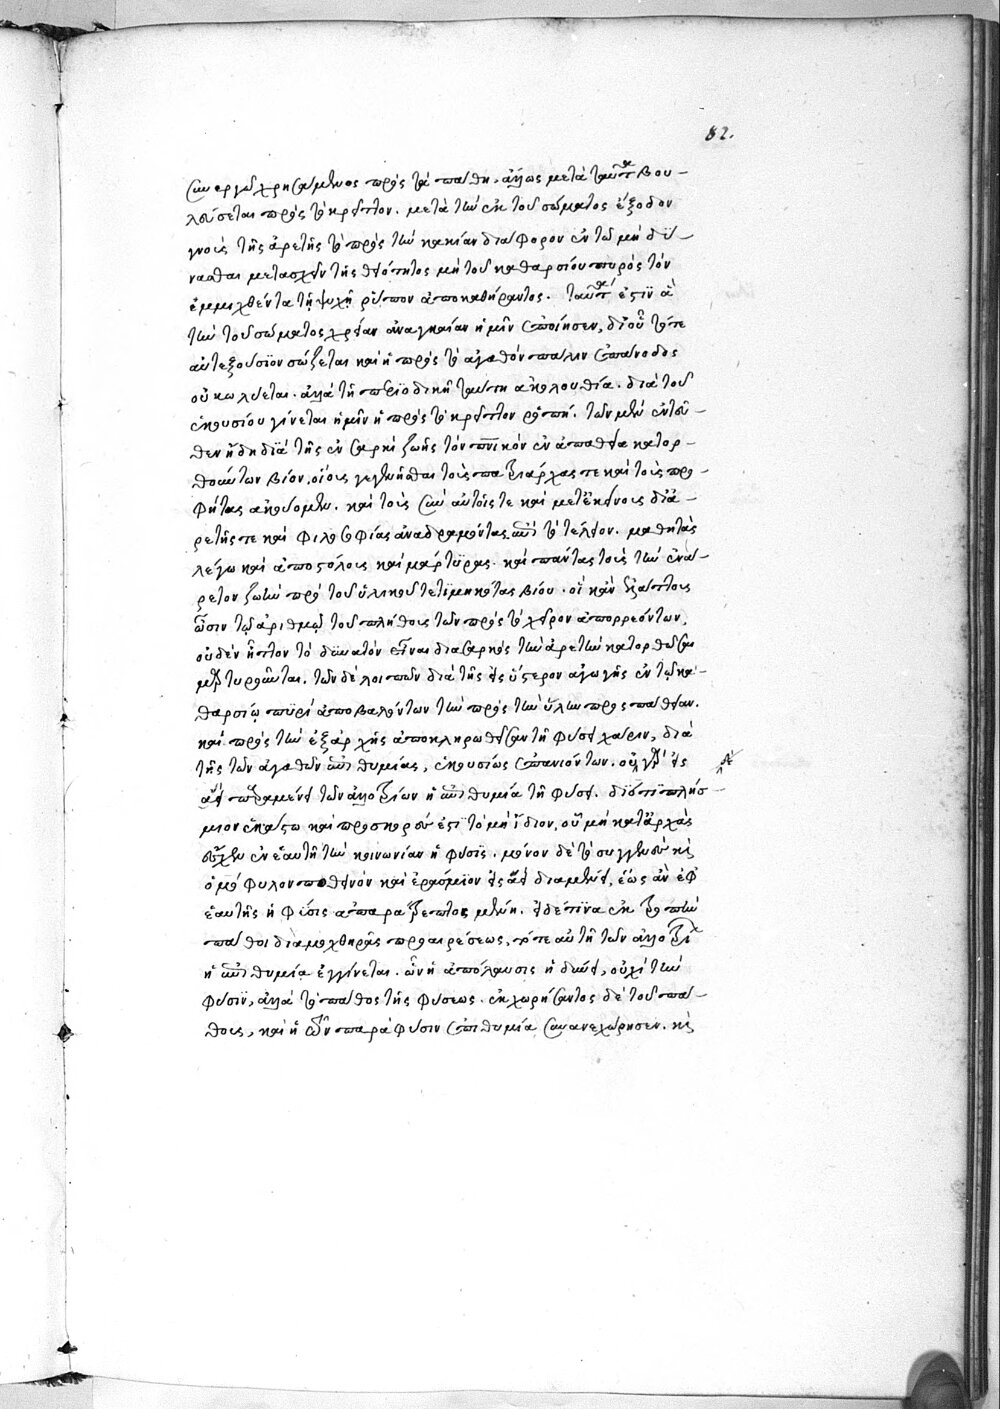 82.
συνεργῶ χρησάμενος πρὸς τὰ πάθη, ἄλλως μετὰ ταῦτα βου-
λεύσεται πρὸς τὸ κρεῖττον. μετὰ τὴν ἐκ τοῦ σώματος ἔξοδον
γνοὺς τῆς ἀρετῆς τὸ πρὸς τὴν κακίαν διάφορον ἐν τῷ μὴ δύ-
νασθαι μετασχεῖν τῆς θεότητος μὴ τοῦ καθαρσίου πυρὸς τὸν
ἐμμιχθέντα τῇ ψυχῇ ῥύπον ἀποκαθήραντος. ταῦτά ἐστιν ἃ
τὴν τοῦ σώματος χρείαν ἀναγκαίαν ἡμῖν ἐποίησεν, δι' οὗ τό τε
αὐτεξούσιον σώζεται καὶ ἡ πρὸς τὸ ἀγαθὸν πάλιν ἐπάνοδος
οὐ κωλύεται. ἀλλὰ τῇ περιοδικῇ ταύτῃ ἀκολουθίᾳ. διὰ τοῦ
ἑκουσίου γίνεται ἡμῖν ἡ πρὸς τὸ κρεῖττον ῥοπή. τῶν μὲν ἐντεῦ-
θεν ἤδη διὰ τῆς ἐν σαρκὶ ζωῆς τὸν πνικὸν ἐν ἀπαθείᾳ κατορ-
θούντων βίον, οἵους γεγενῆσθαι τοὺς πατριάρχας τε καὶ τοὺς προ-
φήτας ἀκούομεν. καὶ τοὺς σὺν αὐτοῖς τε καὶ μετ' ἐκείνους δι' ἀ-
ρετῆς τε καὶ φιλοσοφίας ἀναδραμόντας ἐπὶ τὸ τέλειον. μαθητὰς
λέγω καὶ ἀποστόλους καὶ μάρτυρας. καὶ πάντας τοὺς τὴν ἐνά-
ρετον ζωὴν πρὸ τοῦ ὑλικοῦ τετιμηκότας βίου. οἳ κἂν ἐλάττους
ὦσιν τῷ ἀριθμῷ τοῦ πλήθους τῶν πρὸς τὸ χεῖρον ἀπορρεόντων,
οὐδὲν ἧττον τὸ δυνατὸν εἶναι διὰ σαρκὸς τὴν ἀρετὴν κατορθῶσαι
μαρτυροῦνται. τῶν δὲ λοιπῶν διὰ τῆς εἰς ὕστερον ἀγωγῆς ἐν τῷ κα-
θαρσίῳ πυρὶ ἀποβαλόντων τὴν πρὸς τὴν ὕλην προσπάθειαν.
καὶ πρὸς τὴν ἐξ ἀρχῆς ἀποκληρωθεῖσαν τῇ φύσει χάριν, διὰ
τῆς τῶν ἀγαθῶν ἐπιθυμίας, ἑκουσίως ἐπανιόντων. οὐ γὰρ εἰς
ἀεὶ παραμένει τῶν ἀλλοτρίων ἡ ἐπιθυμία τῇ φύσει. διότι πλήσ-
μιον ἑκάστῳ καὶ προσκορές ἐστι τὸ μὴ ἴδιον, οὗ μὴ κατ' ἀρχὰς
ἔσχεν ἐν ἑαυτῇ τὴν κοινωνίαν ἡ φύσις. μόνον δὲ τὸ συγγενὲς καὶ
ὁμόφυλον ποθεινὸν καὶ ἐράσμιον εἰς ἀεὶ διαμένει, ἕως ἂν ἐφ'
ἑαυτῆς ἡ φύσις ἀπαράτρεπτος μένῃ. εἰ δέ τινα ἐκτροπὴν
πάθοι διὰ μοχθηρᾶς προαιρέσεως, τότε αὐτῇ τῶν ἀλλοτρίων
ἡ ἐπιθυμία ἐγγίνεται. ὧν ἡ ἀπόλαυσις ἡδύνει, οὐχὶ τὴν
φύσιν, ἀλλὰ τὸ πάθος τῆς φύσεως. ἐκχωρήσαντος δὲ τοῦ πά-
θους, καὶ ἡ τῶν παρὰ φύσιν ἐπιθυμία συνανεχώρησεν. καὶ